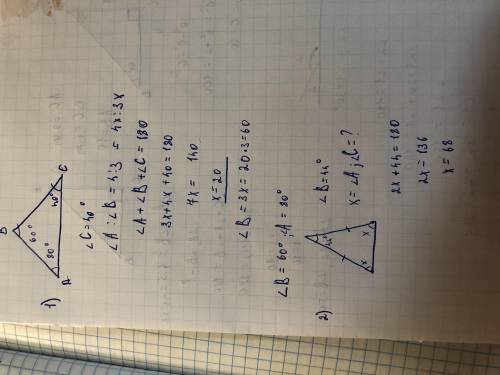 1)
B
60°
80°
40°
A
C
∠C = 40°
∠A : ∠B = 4:3 = 4x:3x
∠A + ∠B + ∠C = 180
3x+4x+40=180
7x = 140
x = 20
∠B = 3x = 20·3=60
∠B = 60° ; ∠A = 80°
2)
44°
x
x
∠B=44°
x = ∠A ; ∠C = ?
2x + 44 = 180
2x = 136
x = 68